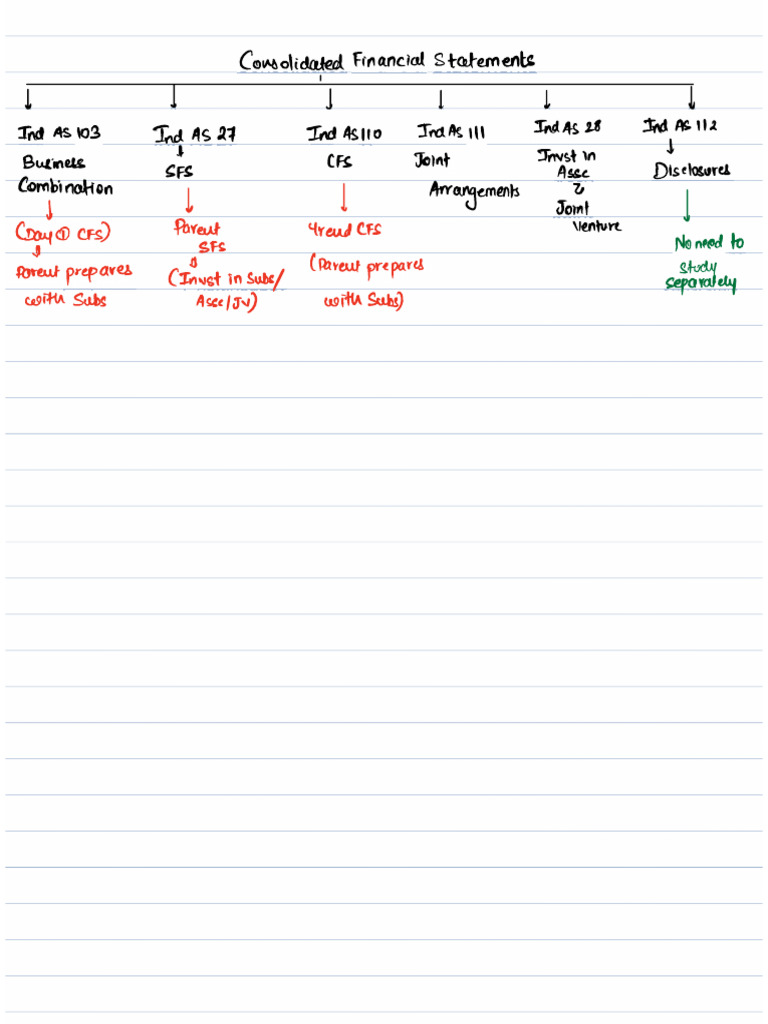 Consolidated Financial Statements
Ind AS 103
Business
Combination
(Day ① CFS)
Parent prepares
with Subs
Ind AS 27
SFS
Parent
SFS
(Invst in Subs/
Assc/JV)
Ind AS 110
CFS
Yrend CFS
(Parent prepares
with Subs)
Ind AS 111
Joint
Arrangements
Ind AS 28
Invst in
Assc
&
Joint
Venture
Ind AS 112
Disclosures
No need to
study
separately